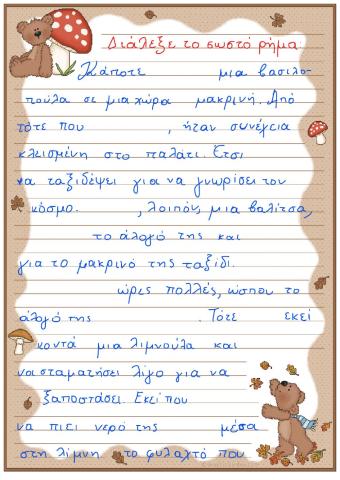 Διάλεξε το σωστό ρήμα:
Κάποτε μια βασιλο-
πούλα σε μια χώρα μακρινή. Από
τότε που , ήταν συνέχεια
κλεισμένη στο παλάτι. Έτσι
να ταξιδέψει για να γνωρίσει τον
κόσμο. , λοιπόν, μια βαλίτσα,
το άλογό της και
για το μακρινό της ταξίδι.
ώρες πολλές, ώσπου το
άλογό της . Τότε εκεί
κοντά μια λιμνούλα και
να σταματήσει λίγο για να
ξαποστάσει. Εκεί που
να πιει νερό της μέσα
στη λίμνη το φυλαχτό που